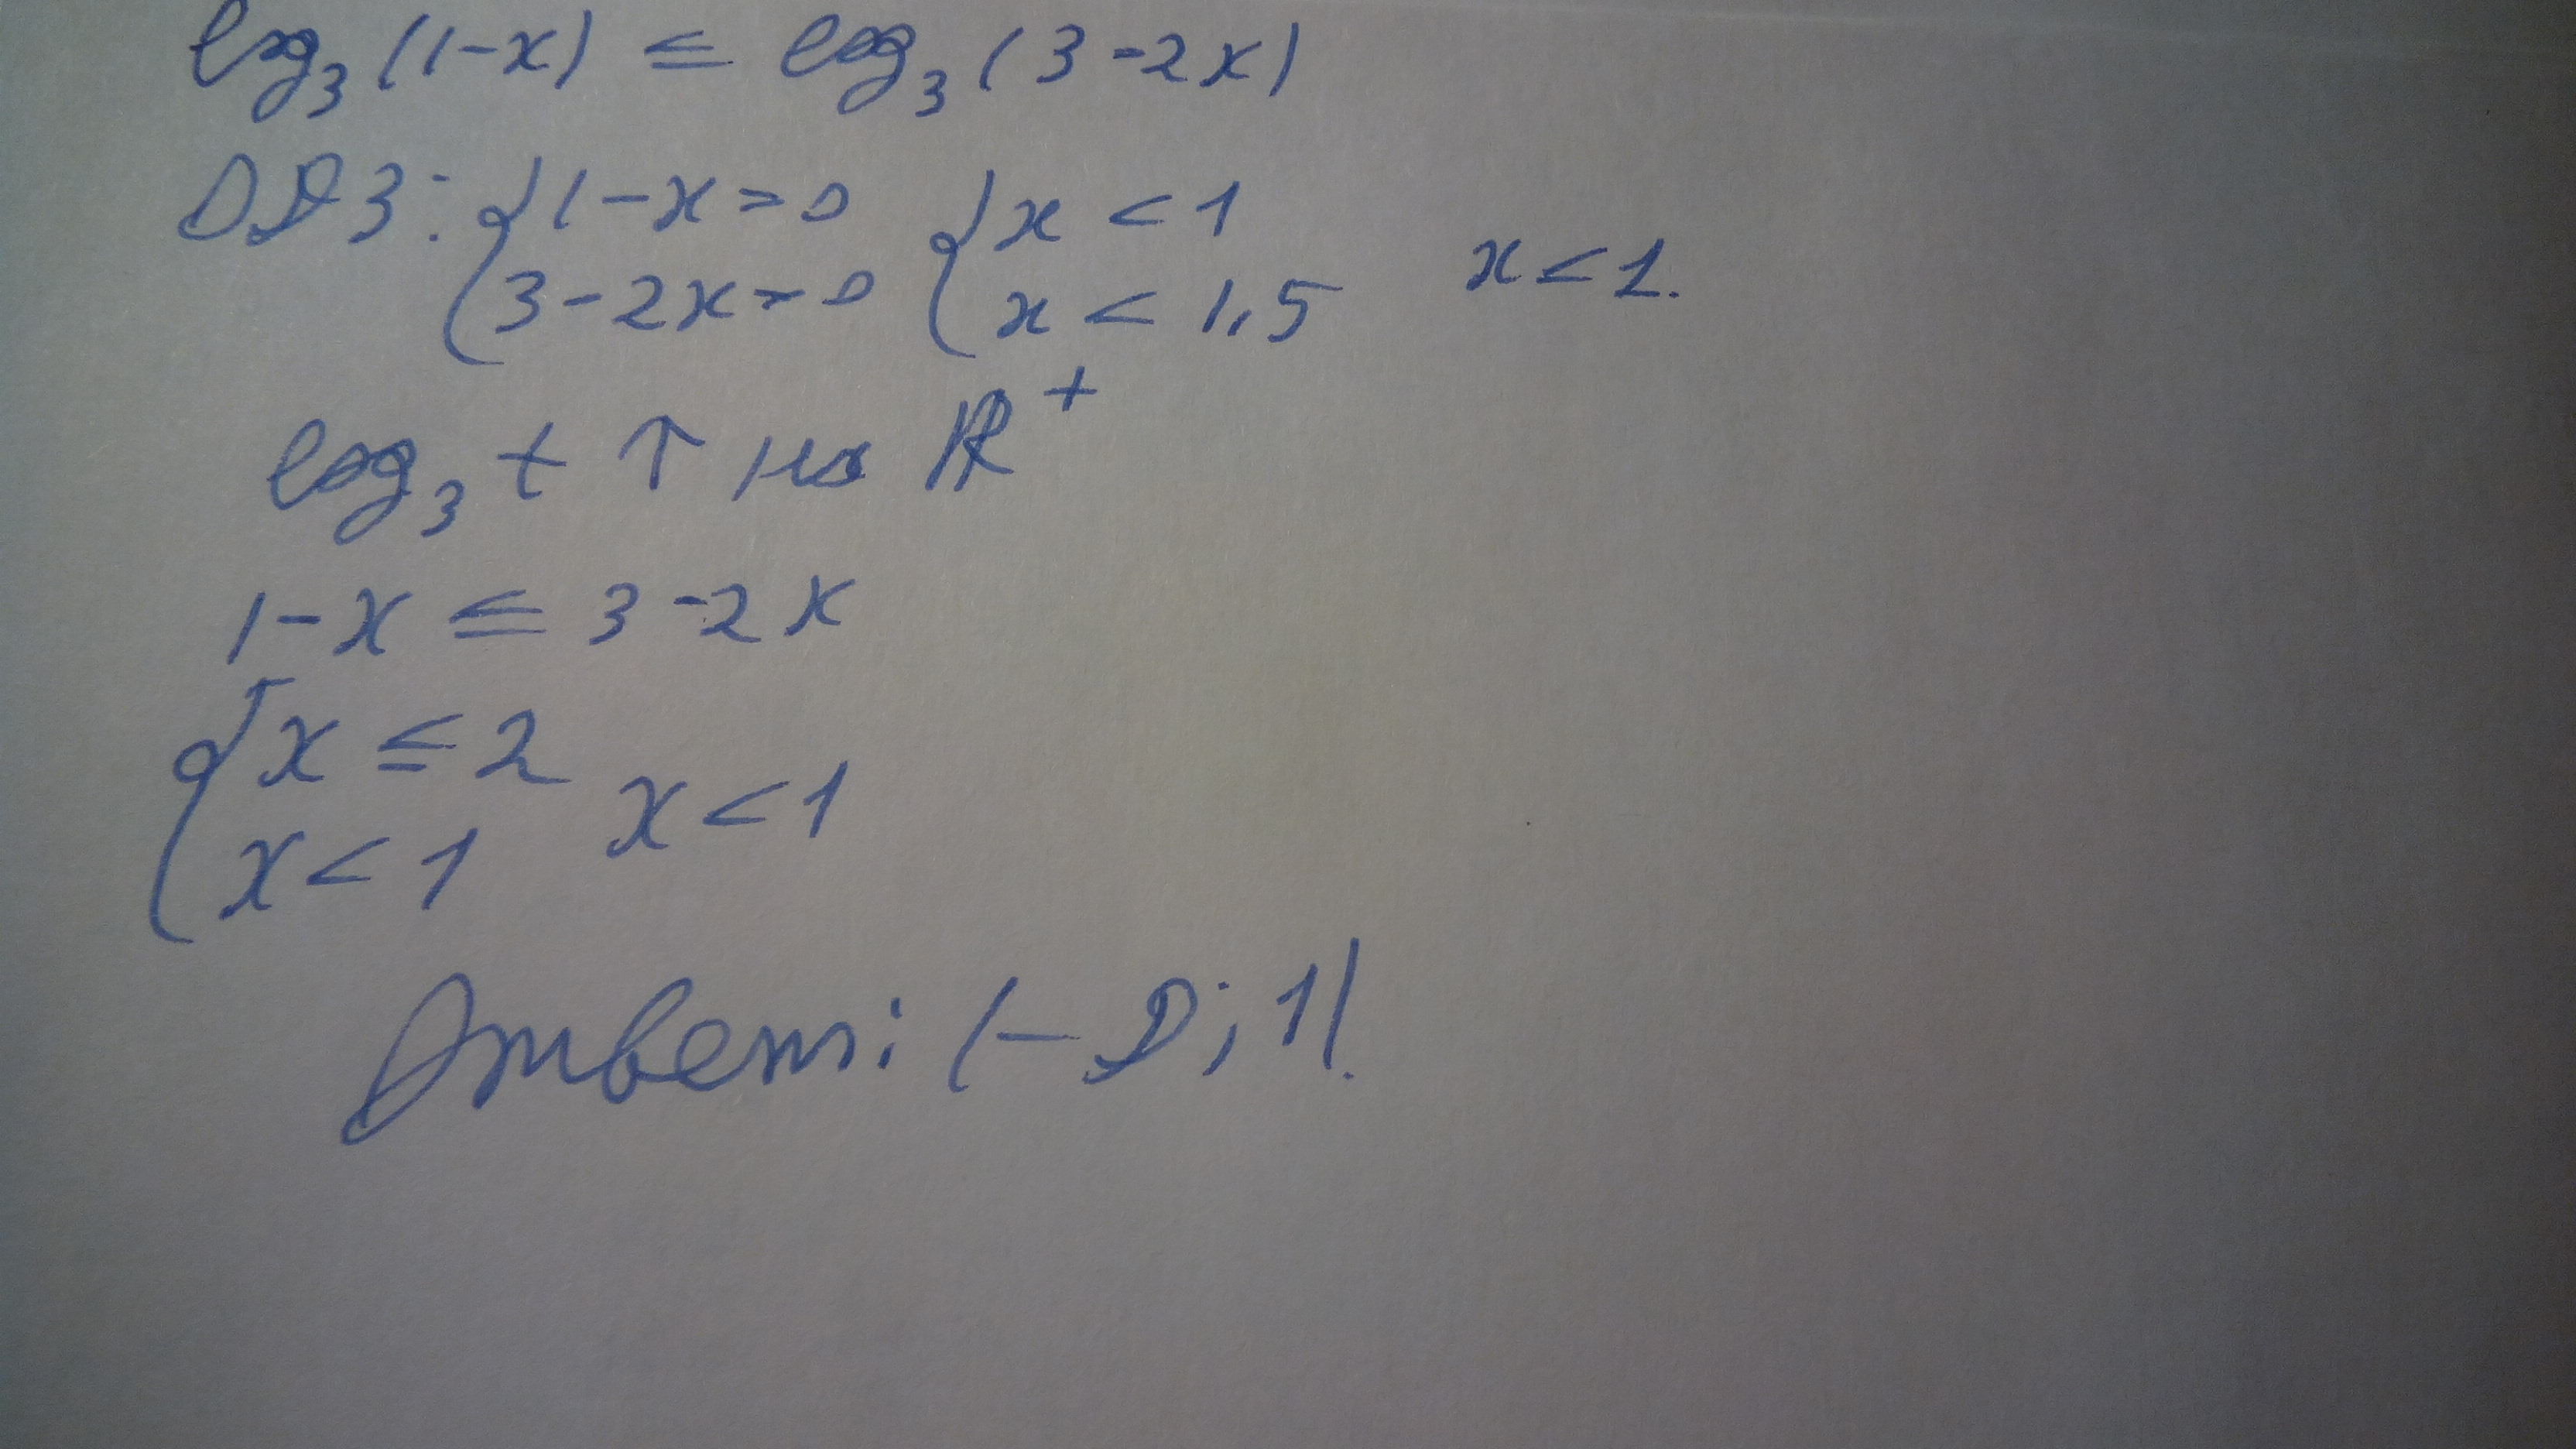 log₃(1-x) ≤ log₃(3-2x)
ОДЗ: { 1-x>0 { x<1 x<1.
3-2x>0 x<1,5
log₃ t ↑ на R⁺
1-x ≤ 3-2x
{ x ≤ 2 x<1
x<1
Ответ: (-∞; 1).